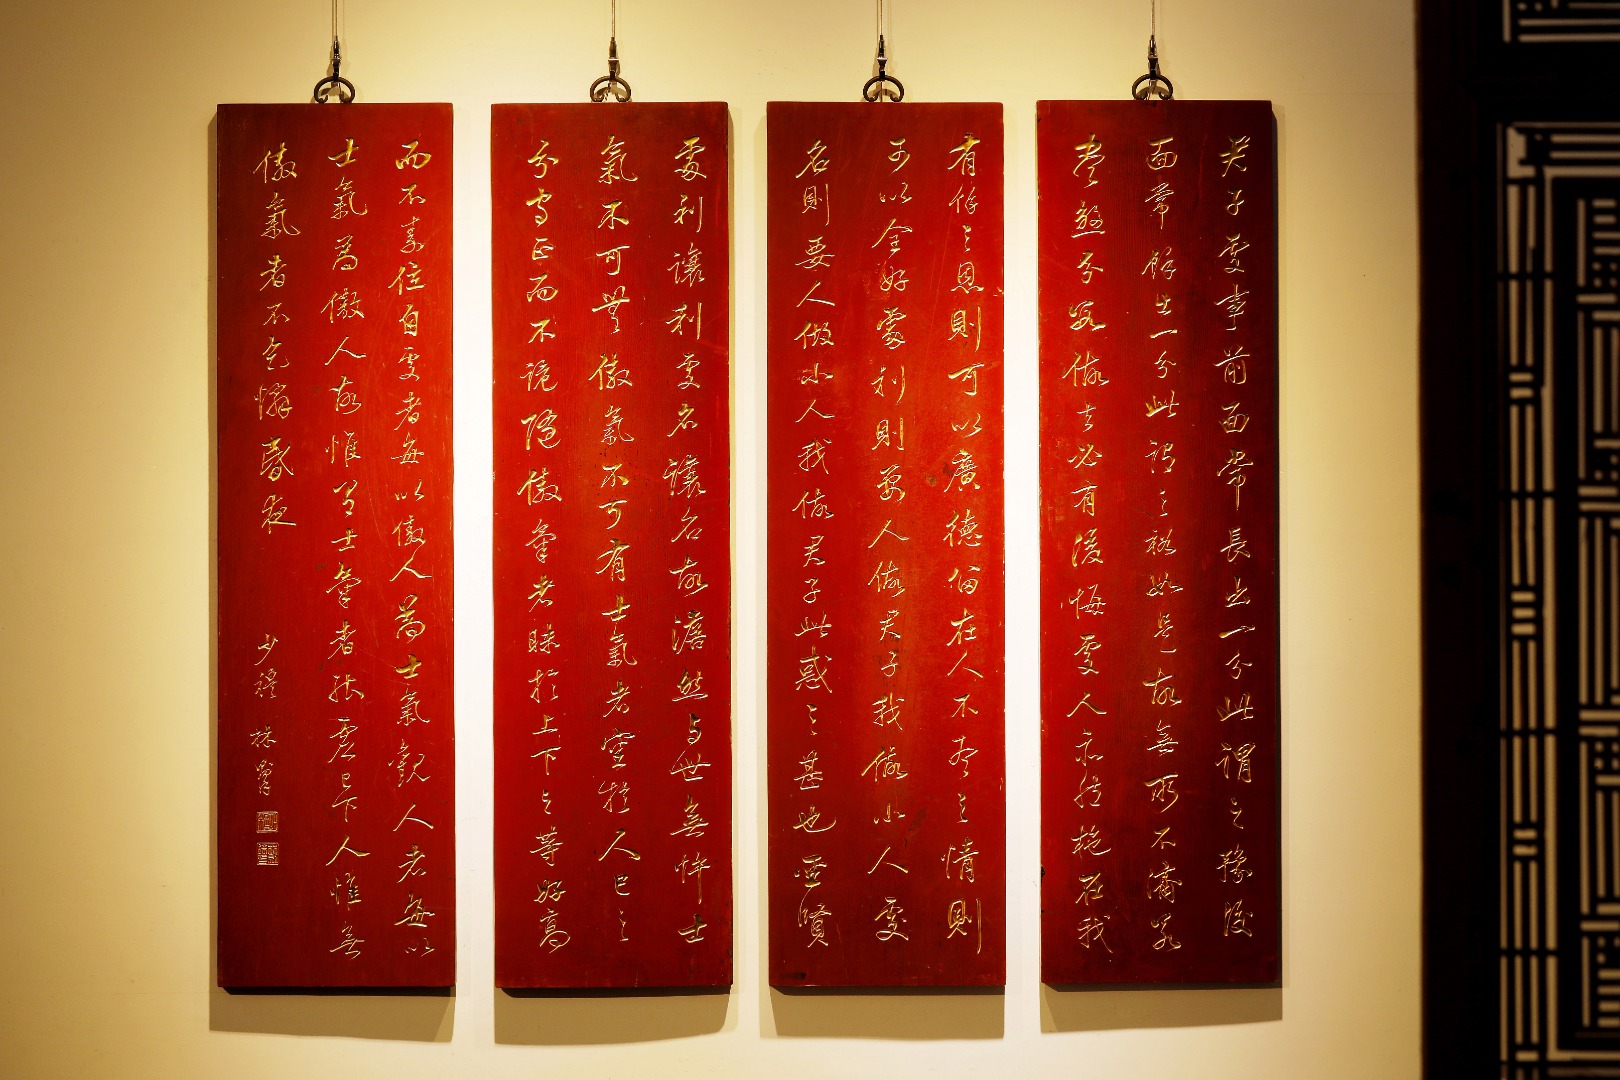 君子處事前面常長出一分此謂之豫後
面常餘出一分此謂之裕如是故無所不濟若
盡煞分數做去必有後悔處人亦然施在我
有餘之恩則可以廣德留在人不盡之情則
可以全好處利則要人做君子我做小人處
名則要人做小人我做君子此惑之甚也聖賢
處利讓利處名讓名故澹然与世無忤士
氣不可無傲氣不可有士氣者於人己之
分守正而不詭隨傲氣者昧於上下之等好高
而不素位自處者每以傲人為士氣觀人者每以
士氣為傲人故惟有士氣者能虛己下人惟無
傲氣者不乞憐昏夜
少穆 林